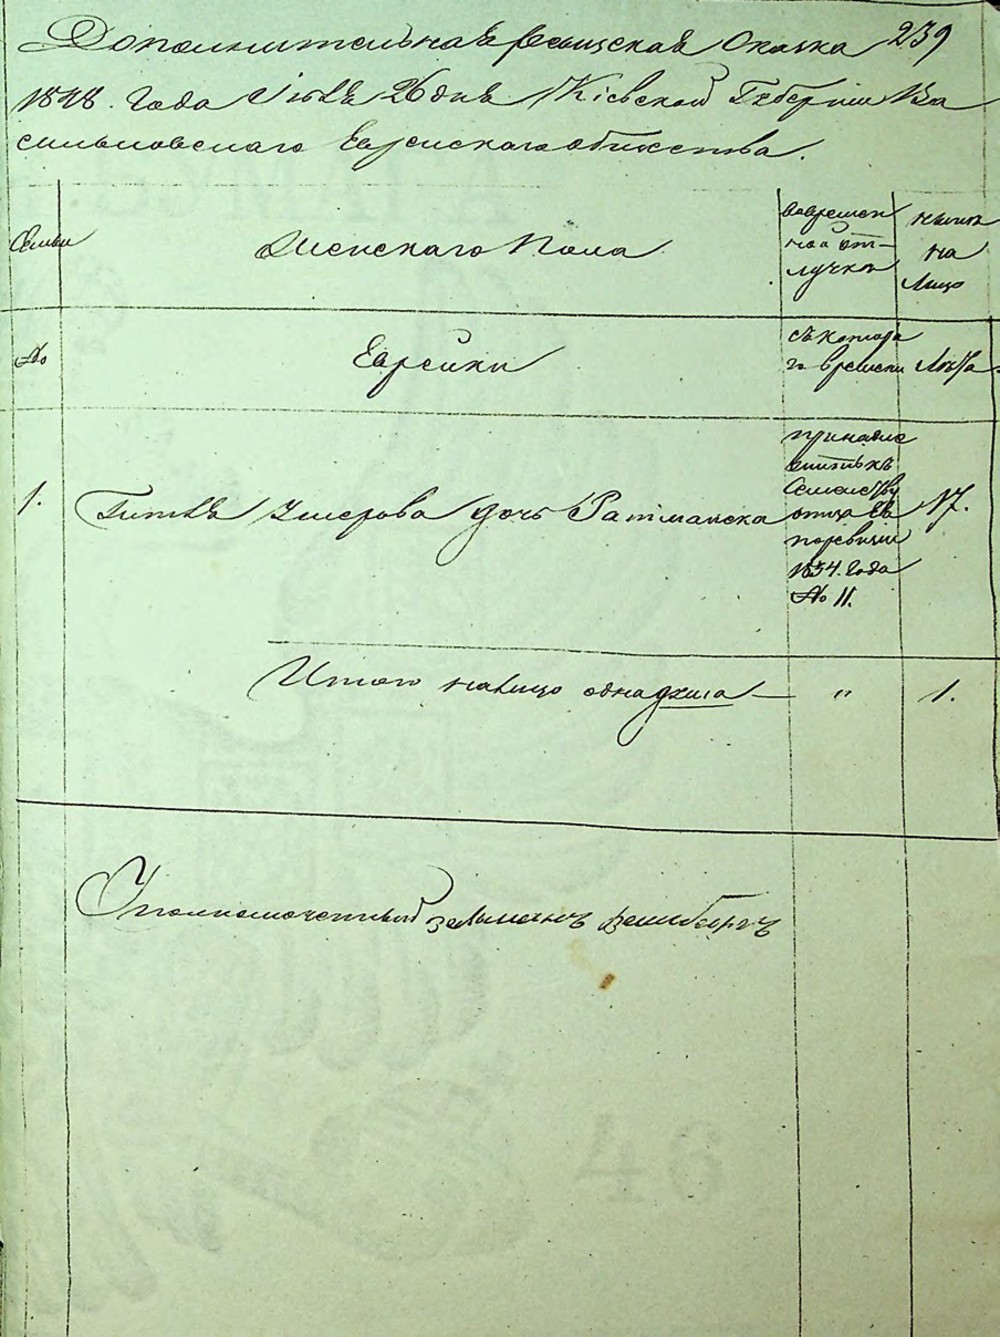 Дополнительная ревизская Сказка 239
1848. Года Июля 26 дня Кіевской Губерніи Ва
сильковскаго Еврейскаго общества.
Семьи
Женскаго Пола
вовремен
ной от-
лучки
нынѣ
на
Лицо
№
Еврейки
съ котора
го времени
Лѣта
1.
Гитля Умерова дочь Ратманска
принадле
житъ къ
Семейству
отца Ея
поревизіи
1834. Года
№ 11.
17.
Итого налицо одна душа — " 1.
Уполномоченный Зельманъ